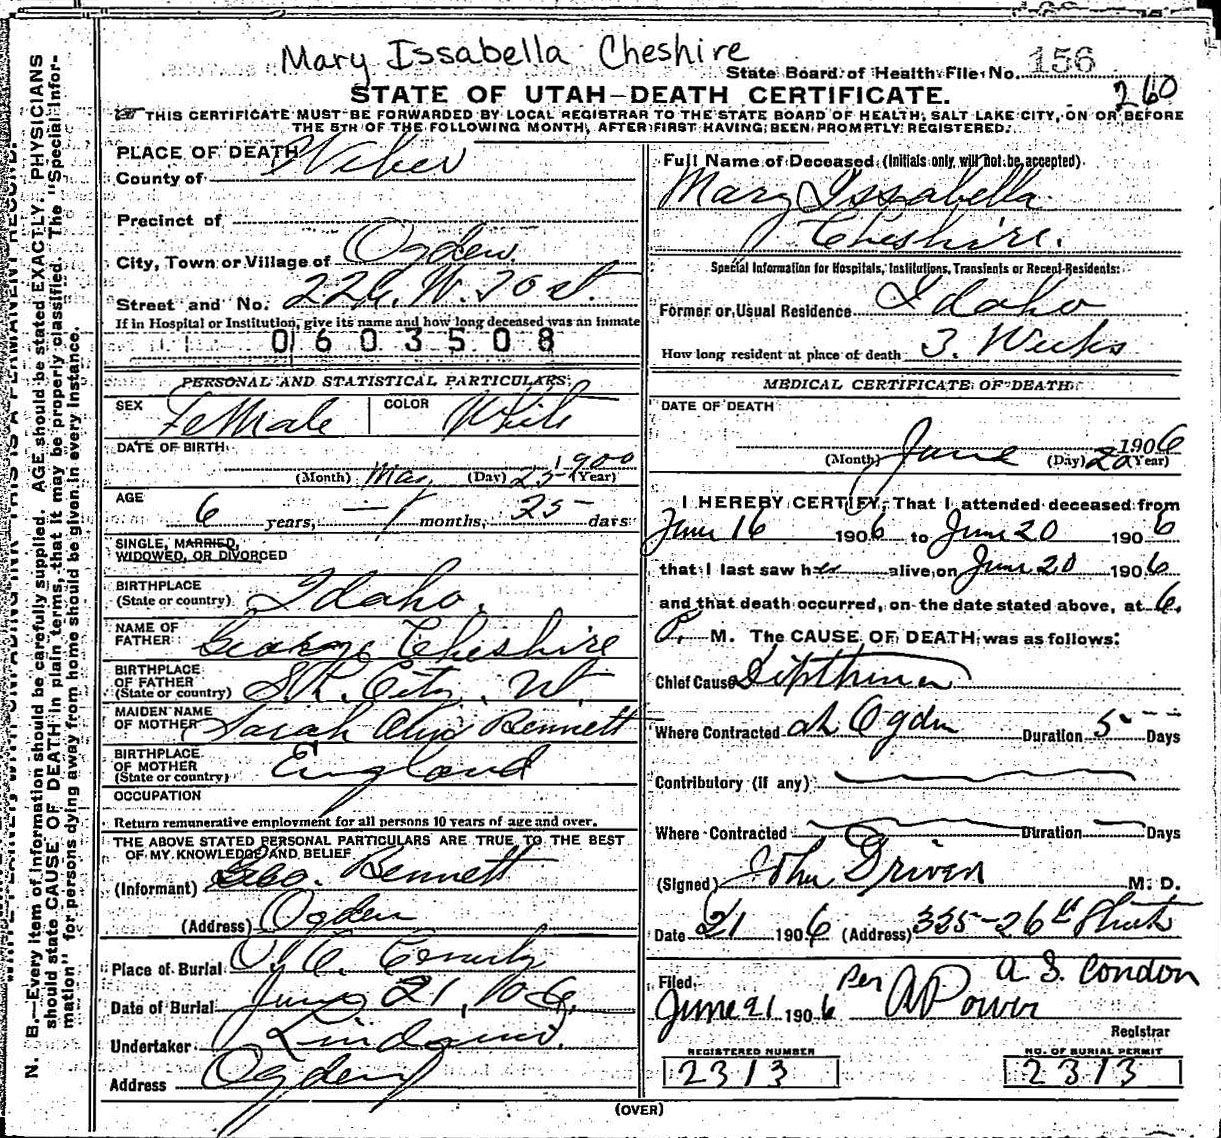 Mary Issabella Cheshire
State Board of Health File No. 156
260
STATE OF UTAH—DEATH CERTIFICATE.
THIS CERTIFICATE MUST BE FORWARDED BY LOCAL REGISTRAR TO THE STATE BOARD OF HEALTH, SALT LAKE CITY, ON OR BEFORE
THE 5TH OF THE FOLLOWING MONTH, AFTER FIRST HAVING BEEN PROMPTLY REGISTERED.
PLACE OF DEATH
County of Weber
Precinct of
City, Town or Village of Ogden
Street and No. 226. W. 20 st.
If in Hospital or Institution, give its name and how long deceased was an inmate
0603508
PERSONAL AND STATISTICAL PARTICULARS
SEX FeMale COLOR White
DATE OF BIRTH
(Month) May (Day) 25 1900 (Year)
AGE
6 years, 1 months, 25 days
SINGLE, MARRIED,
WIDOWED, OR DIVORCED
BIRTHPLACE
(State or country) Idaho.
NAME OF
FATHER George Cheshire
BIRTHPLACE
OF FATHER
(State or country) S.L. City. Ut
MAIDEN NAME
OF MOTHER Sarah Bennett
BIRTHPLACE
OF MOTHER
(State or country) England
OCCUPATION
Return remunerative employment for all persons 10 years of age and over.
THE ABOVE STATED PERSONAL PARTICULARS ARE TRUE TO THE BEST
OF MY KNOWLEDGE AND BELIEF
(Informant) Geo. Bennett
(Address) Ogden
Place of Burial
Date of Burial June 21. 1906.
Undertaker
Address Ogden
Full Name of Deceased (Initials only, will not be accepted)
Mary Issabella
Cheshire.
Special Information for Hospitals, Institutions, Transients or Recent Residents:
Former or Usual Residence Idaho
How long resident at place of death 3. Weeks
MEDICAL CERTIFICATE OF DEATH
DATE OF DEATH
(Month) June (Day) 20 1906 (Year)
I HEREBY CERTIFY, That I attended deceased from
June 16 1906 to June 20 1906
that I last saw her alive on June 20 1906
and that death occurred, on the date stated above, at 6.
P. M. The CAUSE OF DEATH was as follows:
Chief Cause Diptheria
Where Contracted at Ogden Duration 5 Days
Contributory (if any)
Where Contracted Duration Days
(Signed) John Driver M. D.
Date 21 1906 (Address) 325-26th Street
Filed
June 21 1906 Per A. S. Condon
A Power
Registrar
REGISTERED NUMBER
2313
NO. OF BURIAL PERMIT
2313
(OVER)
N. B.—Every item of information should be carefully supplied. AGE should be stated EXACTLY. PHYSICIANS
should state CAUSE OF DEATH in plain terms, that it may be properly classified. The "Special Infor-
mation" for persons dying away from home should be given in every instance.